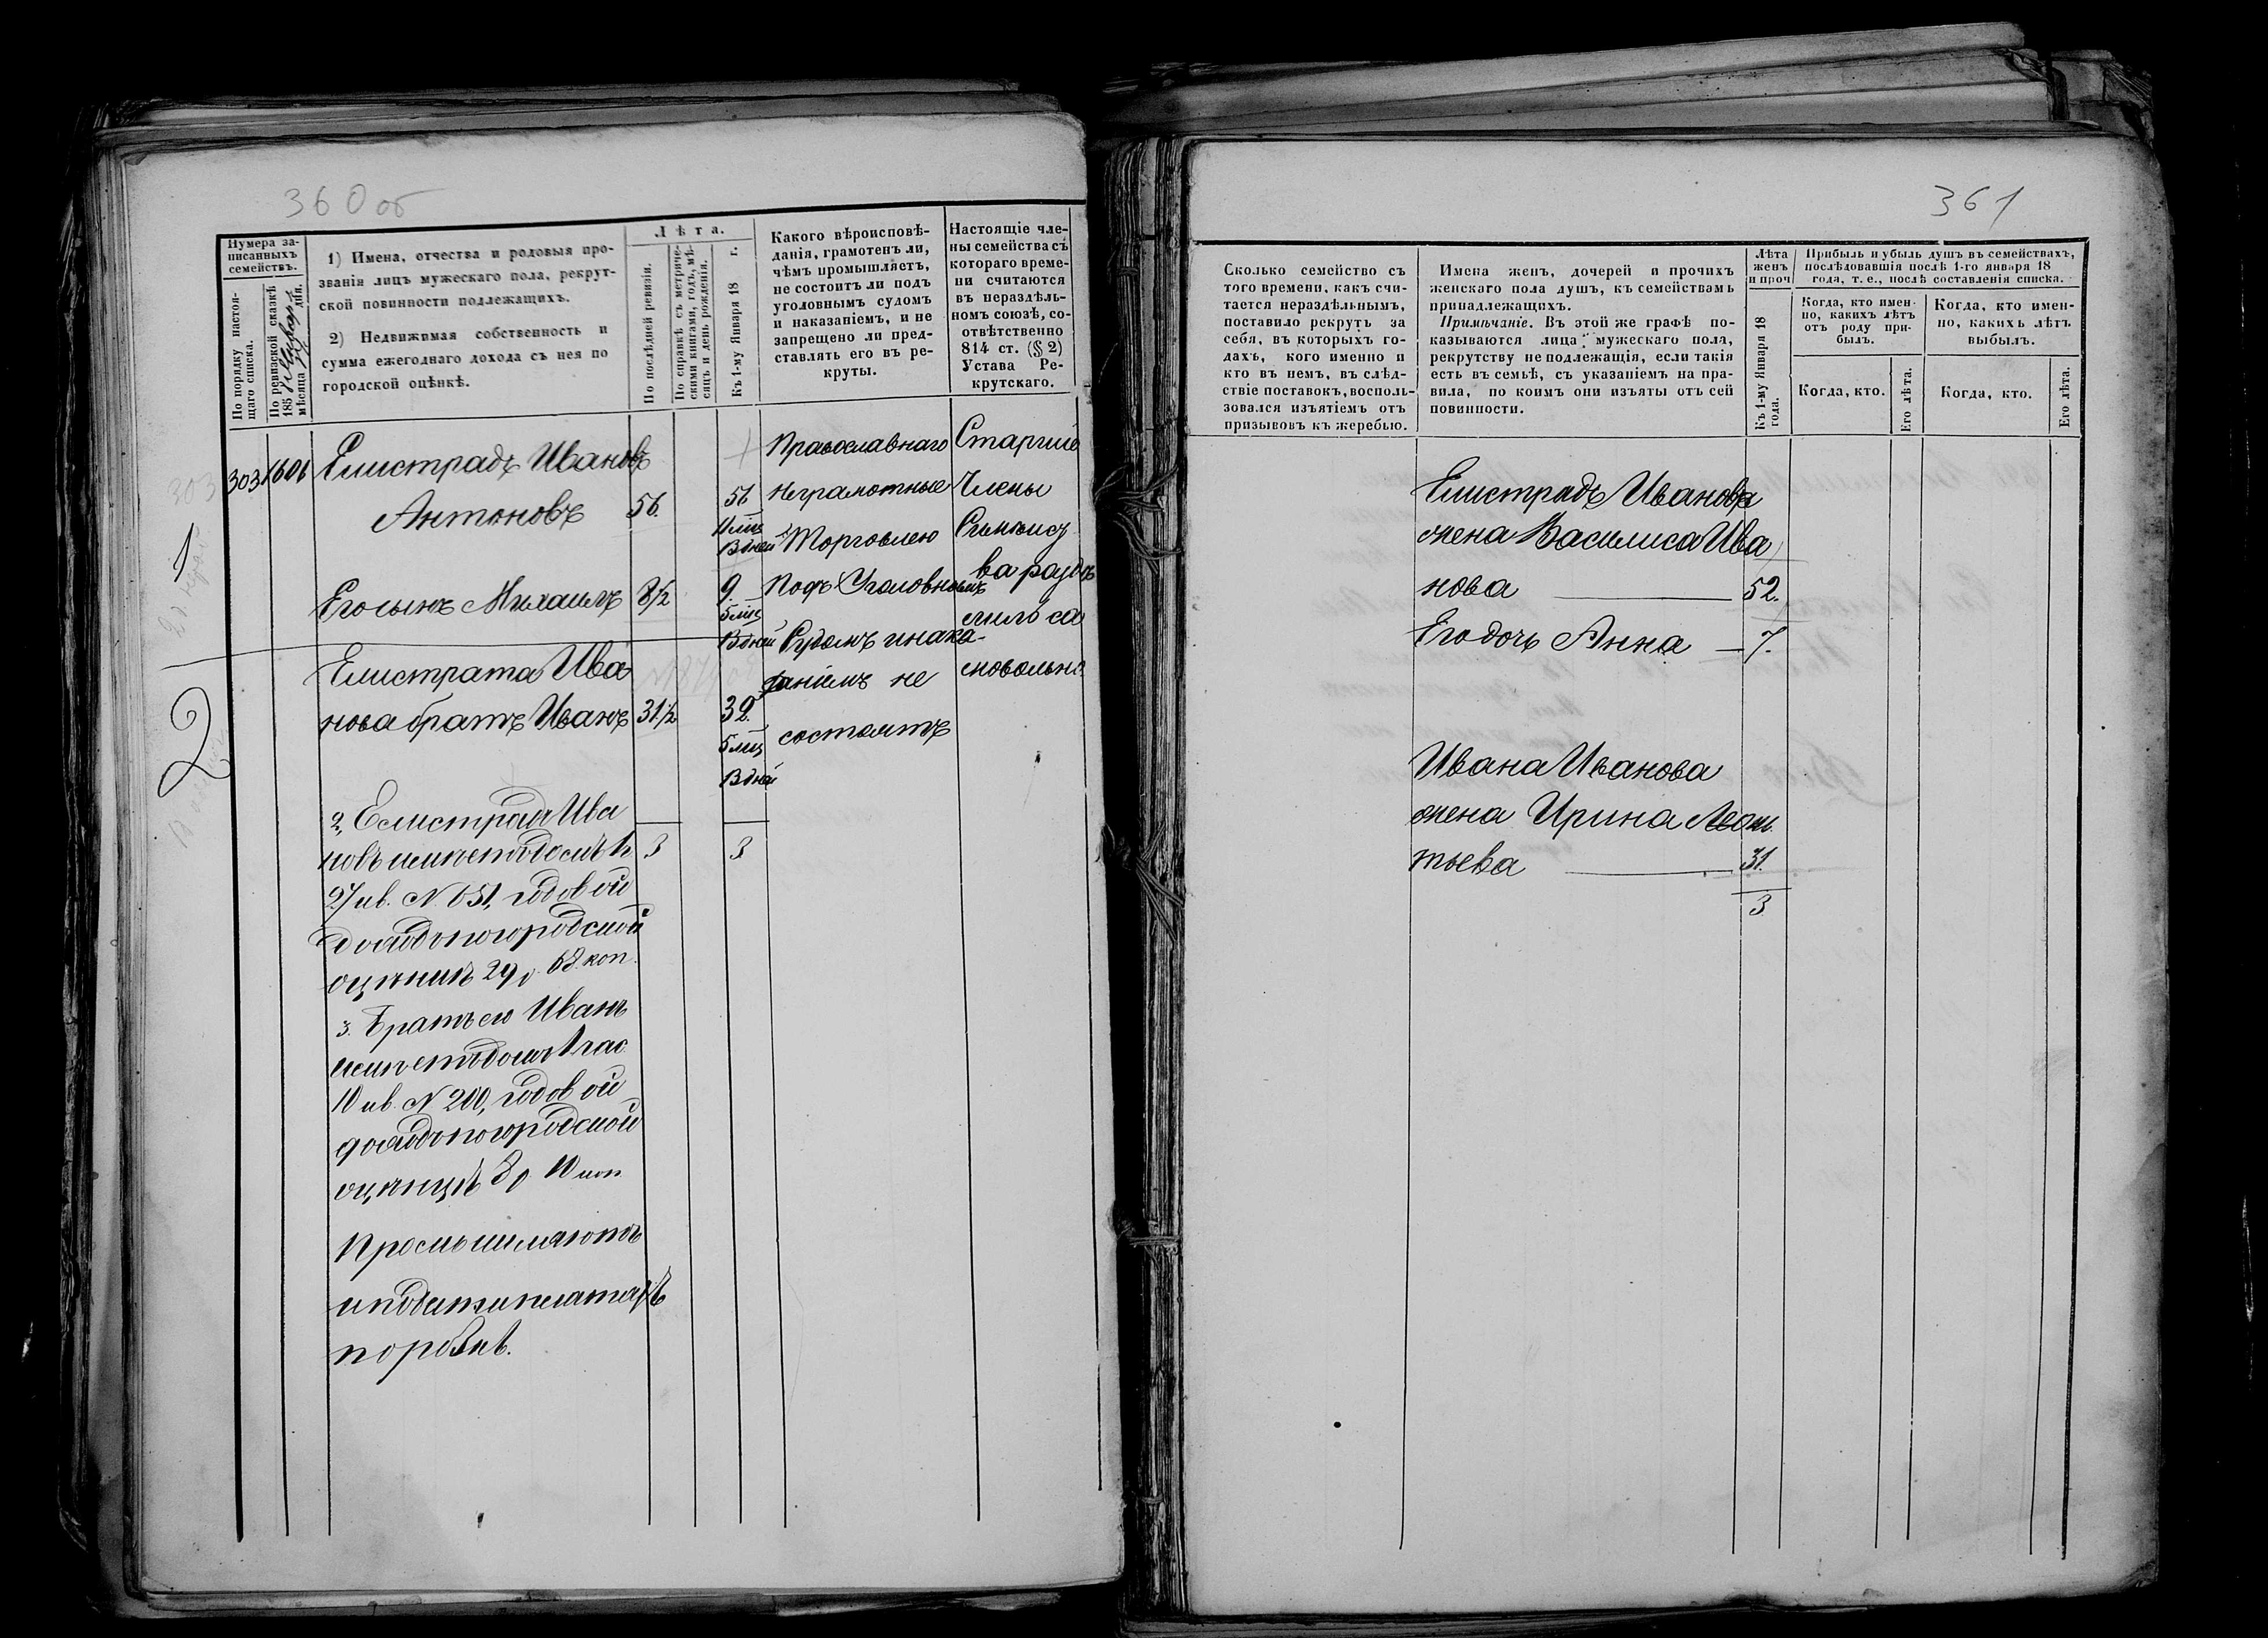 360 об
Нумера за-
писанныхъ
семействъ.
По порядку настоя-
щаго списка.
По ревизской сказкѣ
185 года
мѣсяца дня.
1) Имена, отчества и родовыя про-
званія лицъ мужескаго пола, рекрут-
ской повинности подлежащихъ.
2) Недвижимая собственность и
сумма ежегоднаго дохода съ нея по
городской оцѣнкѣ.
Лѣта.
По послѣдней ревизіи.
По справкѣ съ метриче-
скими книгами, годъ, мѣ-
сяцъ и день рожденія.
Къ 1-му Января 18 г.
Какого вѣроисповѣ-
данія, грамотенъ ли,
чѣмъ промышляетъ,
не состоитъ ли подъ
уголовнымъ судомъ
и наказаніемъ, и не
запрещено ли пред-
ставлять его въ ре-
круты.
Настоящіе чле-
ны семейства съ
котораго време-
ни считаются
въ нераздѣль-
номъ союзѣ, со-
отвѣтственно
814 ст. (§ 2)
Устава Ре-
крутскаго.
303
1
2
303 1606 Елистрадъ Ивановъ
Антоновъ 56. 56
Его сынъ Михаилъ 8½ 9.
5 мц
13 дней
Елистрата Ива
нова братъ Иванъ 31½ 32.
5 мц
13 дней
3 3
2, Елистрадъ Ива
новъ имѣетъ домъ въ
27 кв. N 651, годовой
доходъ по городской
оцѣнкѣ 29 р. 68 коп.
3. Братъ его Иванъ
имѣетъ домъ 1 час
10 кв. N 200, годовой
доходъ по городской
оцѣнкѣ 8 р 10 коп
Промышляютъ
и подати платятъ
поровнѣ.
Православнаго
Неграмотные
Торговлею
Подъ Уголовнымъ
Судомъ и нака-
заніемъ не
состоятъ
Старшіе
Члены
Семейст
ва раздѣ
лило са
мовольно
361
Сколько семейство съ
того времени, какъ счи-
тается нераздѣльнымъ,
поставило рекрутъ за
себя, въ которыхъ го-
дахъ, кого именно и
кто въ немъ, въ слѣд-
ствіе поставокъ, восполь-
зовался изъятіемъ отъ
призывовъ къ жеребью.
Имена женъ, дочерей и прочихъ
женскаго пола душъ, къ семействамъ
принадлежащихъ.
Примѣчаніе. Въ этой же графѣ по-
казываются лица мужескаго пола,
рекрутству не подлежащія, если такія
есть въ семьѣ, съ указаніемъ на пра-
вила, по коимъ они изъяты отъ сей
повинности.
Лѣта
женъ
и проч
Къ 1-му Января 18
года.
Прибыль и убыль душъ въ семействахъ,
послѣдовавшія послѣ 1-го января 18
года, т. е., послѣ составленія списка.
Когда, кто имен-
но, какихъ лѣтъ
отъ роду при-
былъ.
Когда, кто имен-
но, какихъ лѣтъ
выбылъ.
Когда, кто.
Его лѣта.
Когда, кто.
Его лѣта.
Елистрадъ Иванова
жена Василиса Ива
нова 52.
Его дочь Анна 7.
Ивана Иванова
жена Ирина Леон
тьева 31.
3